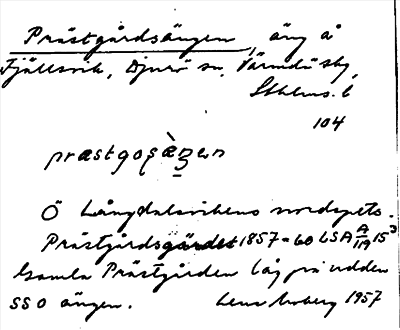 Prästgårdsängen, äng å
Fjällsvik, Djurö sn, Värmdö skg
Sthlms. l
104
præstgoṣæ̀ŋen
Ö Långdalsvikens nordspets.
Prästgårdsgärdet 1857-60 LSA A/119 15³
Gamla Prästgården låg på udden
SSO ängen. Lena Moberg 1957